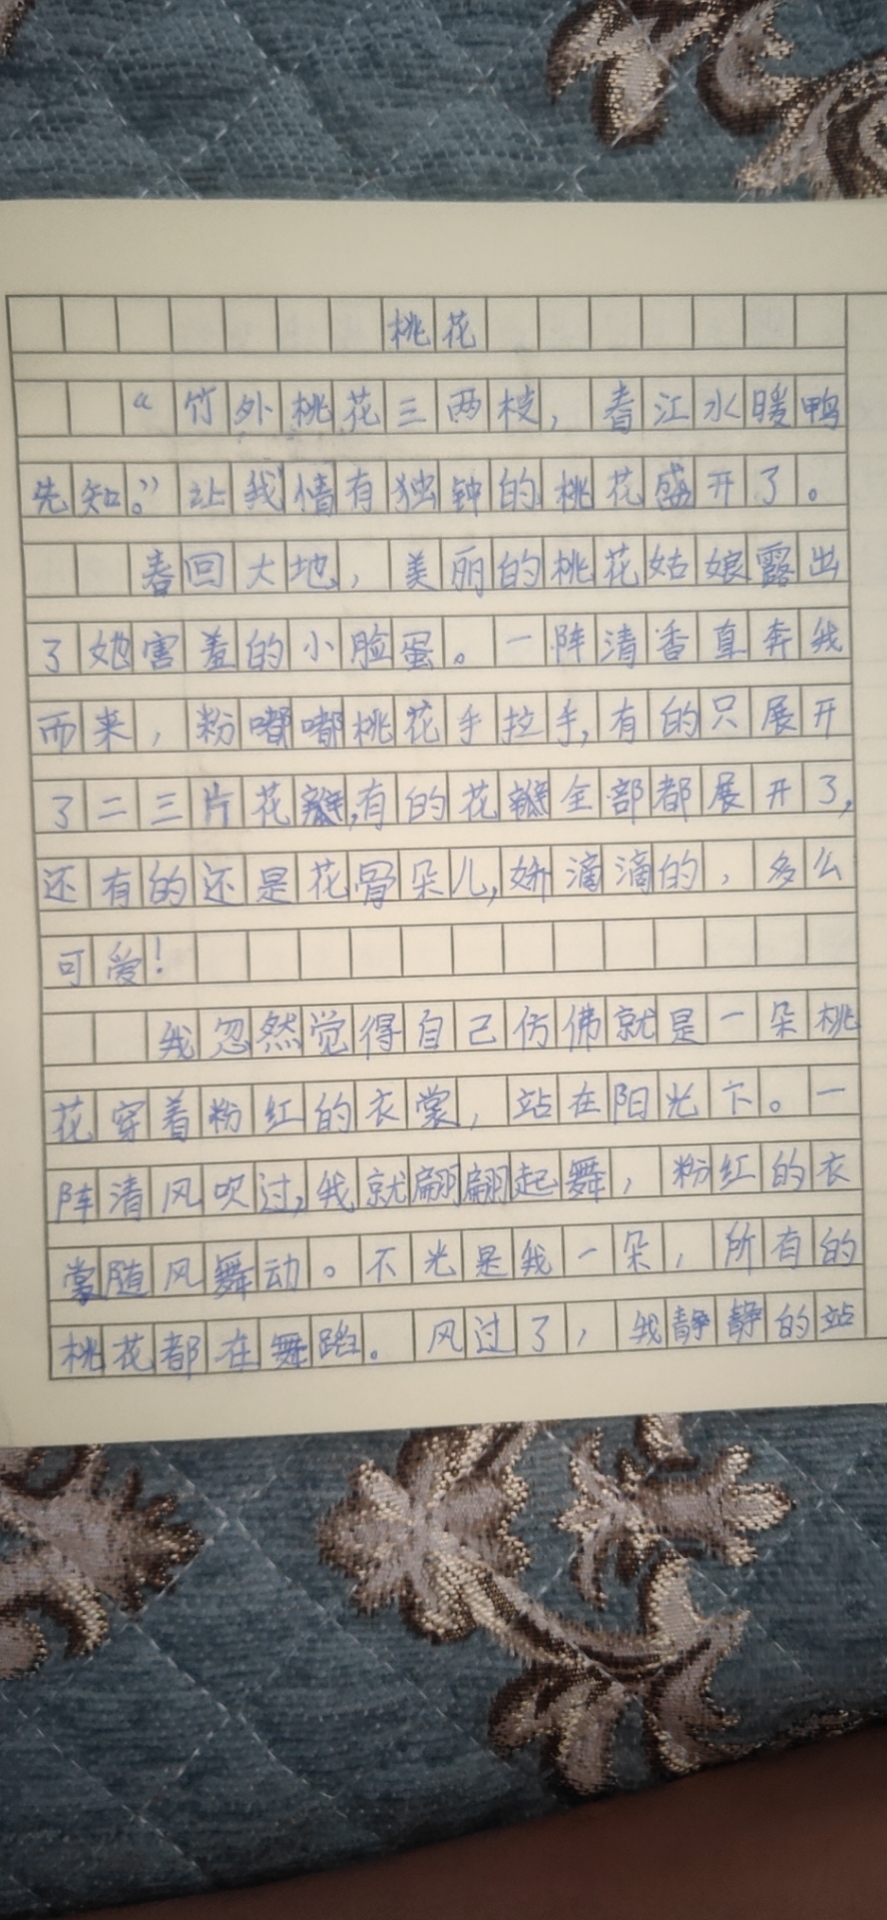 桃花
“竹外桃花三两枝，春江水暖鸭
先知。”让我情有独钟的桃花盛开了。
春回大地，美丽的桃花姑娘露出
了她害羞的小脸蛋。一阵清香直奔我
而来，粉嘟嘟桃花手拉手,有的只展开
了二三片花瓣,有的花瓣全部都展开了,
还有的还是花骨朵儿,娇滴滴的，多么
可爱！
我忽然觉得自己仿佛就是一朵桃
花穿着粉红的衣裳，站在阳光下。一
阵清风吹过,我就翩翩起舞，粉红的衣
裳随风舞动。不光是我一朵，所有的
桃花都在舞蹈。风过了，我静静的站